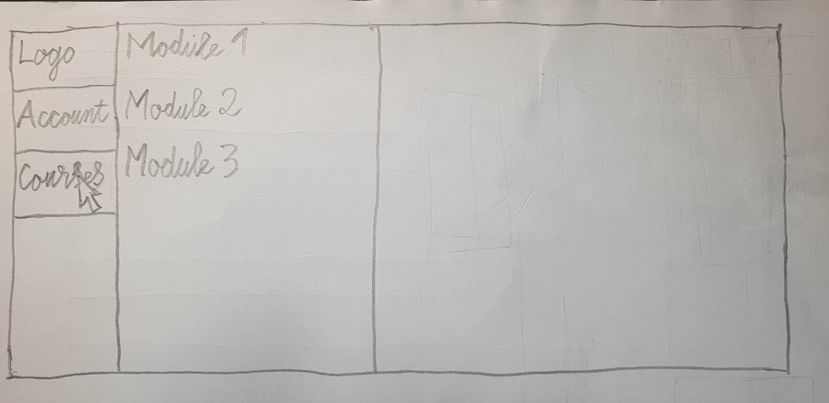 Logo
Account
Courses
Module 1
Module 2
Module 3